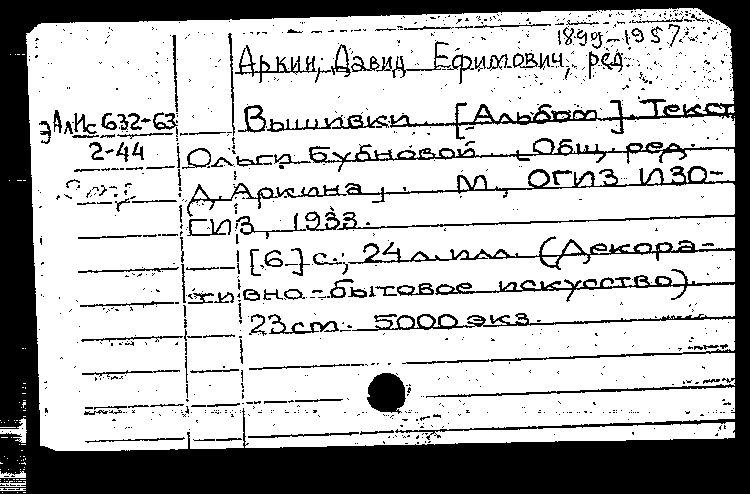 1899-1957
Аркин, Давид Ефимович, ред.
ЭАлИс 632-63
2-44
Вышивки. [Альбом]. Текст
Ольги Бубновой. Общ. ред.
Д. Аркина, М., ОГИЗ ИЗО-
ГИЗ, 1933.
[6] с.; 24 л. илл. (Декора-
тивно-бытовое искусство).
23 cm. 5000 экз.